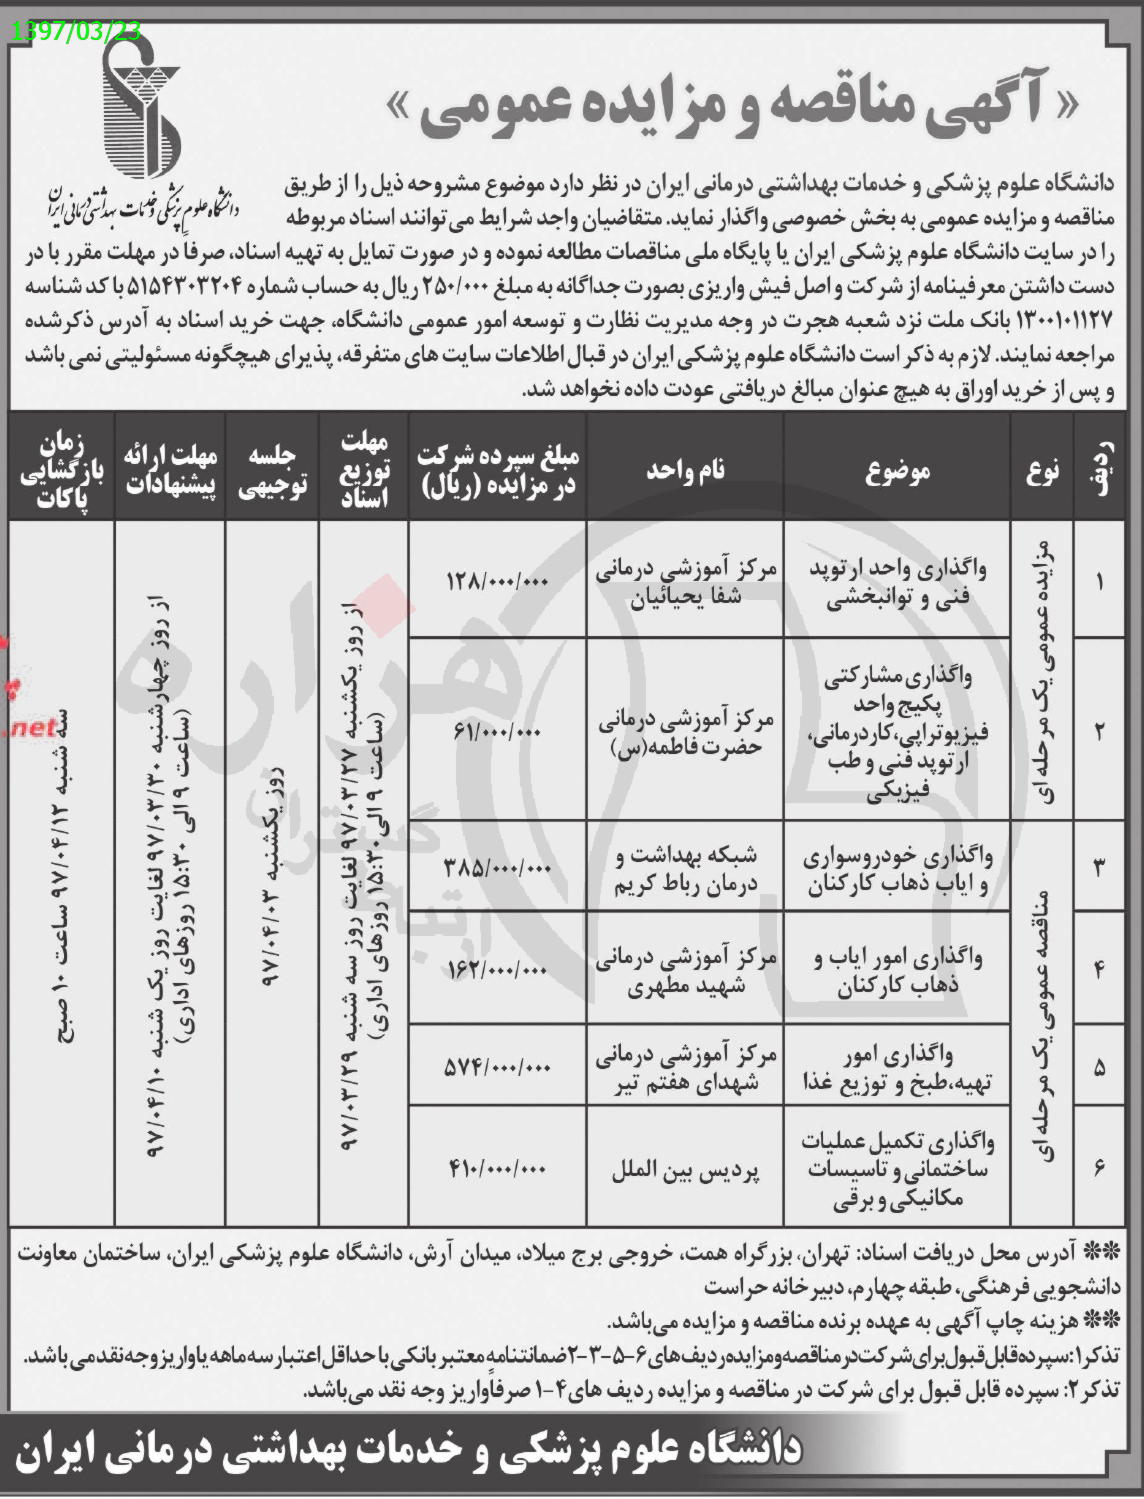 1397/03/23
« آگهی مناقصه و مزایده عمومی »
دانشگاه علوم پزشکی و خدمات بهداشتی درمانی ایران
دانشگاه علوم پزشکی و خدمات بهداشتی درمانی ایران در نظر دارد موضوع مشروحه ذیل را از طریق
مناقصه و مزایده عمومی به بخش خصوصی واگذار نماید. متقاضیان واجد شرایط می توانند اسناد مربوطه
را در سایت دانشگاه علوم پزشکی ایران یا پایگاه ملی مناقصات مطالعه نموده و در صورت تمایل به تهیه اسناد، صرفاً در مهلت مقرر با در
دست داشتن معرفینامه از شرکت و اصل فیش واریزی بصورت جداگانه به مبلغ ۲۵۰/۰۰۰ ریال به حساب شماره ۵۱۵۴۳۰۳۲۰۴ با کد شناسه
۱۳۰۰۱۰۱۱۲۷ بانک ملت نزد شعبه هجرت در وجه مدیریت نظارت و توسعه امور عمومی دانشگاه، جهت خرید اسناد به آدرس ذکرشده
مراجعه نمایند. لازم به ذکر است دانشگاه علوم پزشکی ایران در قبال اطلاعات سایت های متفرقه، پذیرای هیچگونه مسئولیتی نمی باشد
و پس از خرید اوراق به هیچ عنوان مبالغ دریافتی عودت داده نخواهد شد.
ردیف
نوع
موضوع
نام واحد
مبلغ سپرده شرکت
در مزایده (ریال)
مهلت
توزیع
اسناد
جلسه
توجیهی
مهلت ارائه
پیشنهادات
زمان
بازگشایی
پاکات
۱
مزایده عمومی یک مرحله ای
واگذاری واحد ارتوپد
فنی و توانبخشی
مرکز آموزشی درمانی
شفا یحیائیان
۱۲۸/۰۰۰/۰۰۰
از روز یکشنبه ۹۷/۰۳/۲۷ لغایت روز سه شنبه ۹۷/۰۳/۲۹
(ساعت ۹ الی ۱۵:۳۰ روزهای اداری)
روز یکشنبه ۹۷/۰۴/۰۳
از روز چهارشنبه ۹۷/۰۳/۳۰ لغایت روز یک شنبه ۹۷/۰۴/۱۰
(ساعت ۹ الی ۱۵:۳۰ روزهای اداری)
سه شنبه ۹۷/۰۴/۱۲ ساعت ۱۰ صبح
۲
واگذاری مشارکتی
پکیج واحد
فیزیوتراپی،کاردرمانی،
ارتوپد فنی و طب
فیزیکی
مرکز آموزشی درمانی
حضرت فاطمه(س)
۶۱/۰۰۰/۰۰۰
۳
مناقصه عمومی یک مرحله ای
واگذاری خودروسواری
و ایاب ذهاب کارکنان
شبکه بهداشت و
درمان رباط کریم
۳۸۵/۰۰۰/۰۰۰
۴
واگذاری امور ایاب و
ذهاب کارکنان
مرکز آموزشی درمانی
شهید مطهری
۱۶۲/۰۰۰/۰۰۰
۵
واگذاری امور
تهیه،طبخ و توزیع غذا
مرکز آموزشی درمانی
شهدای هفتم تیر
۵۷۴/۰۰۰/۰۰۰
۶
واگذاری تکمیل عملیات
ساختمانی و تاسیسات
مکانیکی و برقی
پردیس بین الملل
۴۱۰/۰۰۰/۰۰۰
هزاره
گستران
.net
** آدرس محل دریافت اسناد: تهران، بزرگراه همت، خروجی برج میلاد، میدان آرش، دانشگاه علوم پزشکی ایران، ساختمان معاونت
دانشجویی فرهنگی، طبقه چهارم، دبیرخانه حراست
** هزینه چاپ آگهی به عهده برنده مناقصه و مزایده می‌باشد.
تذکر۱: سپرده قابل قبول برای شرکت در مناقصه و مزایده ردیف های ۶-۵-۳-۲ ضمانتنامه معتبر بانکی با حداقل اعتبار سه ماهه یا واریز وجه نقد می باشد.
تذکر۲: سپرده قابل قبول برای شرکت در مناقصه و مزایده ردیف های ۴-۱ صرفاً واریز وجه نقد می‌باشد.
دانشگاه علوم پزشکی و خدمات بهداشتی درمانی ایران